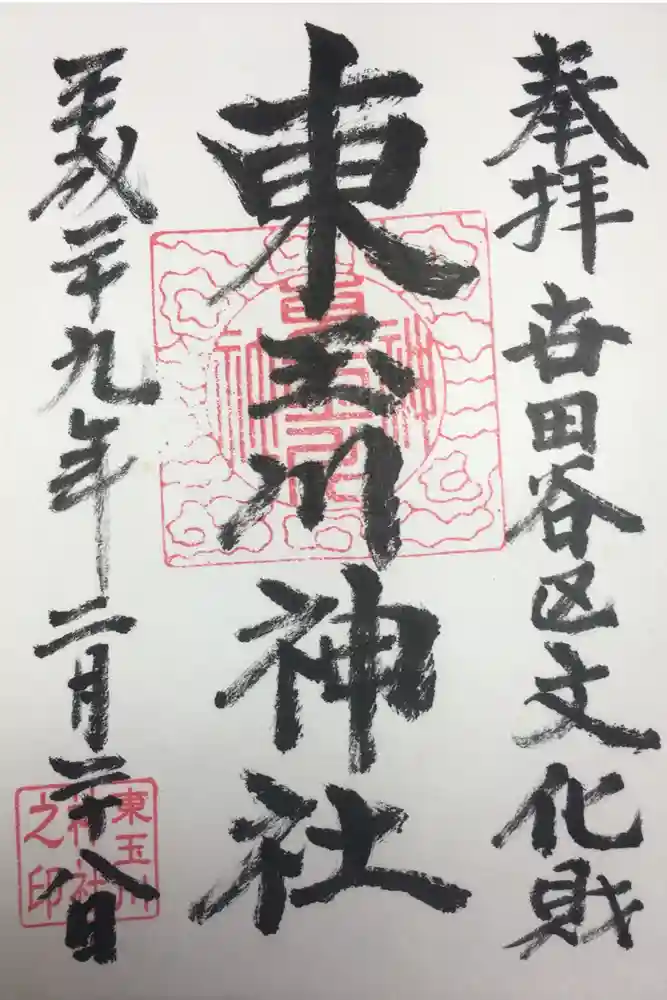 奉拝 世田谷区文化財
東玉川神社
平成二十九年二月二十八日
東玉川
神社
之印